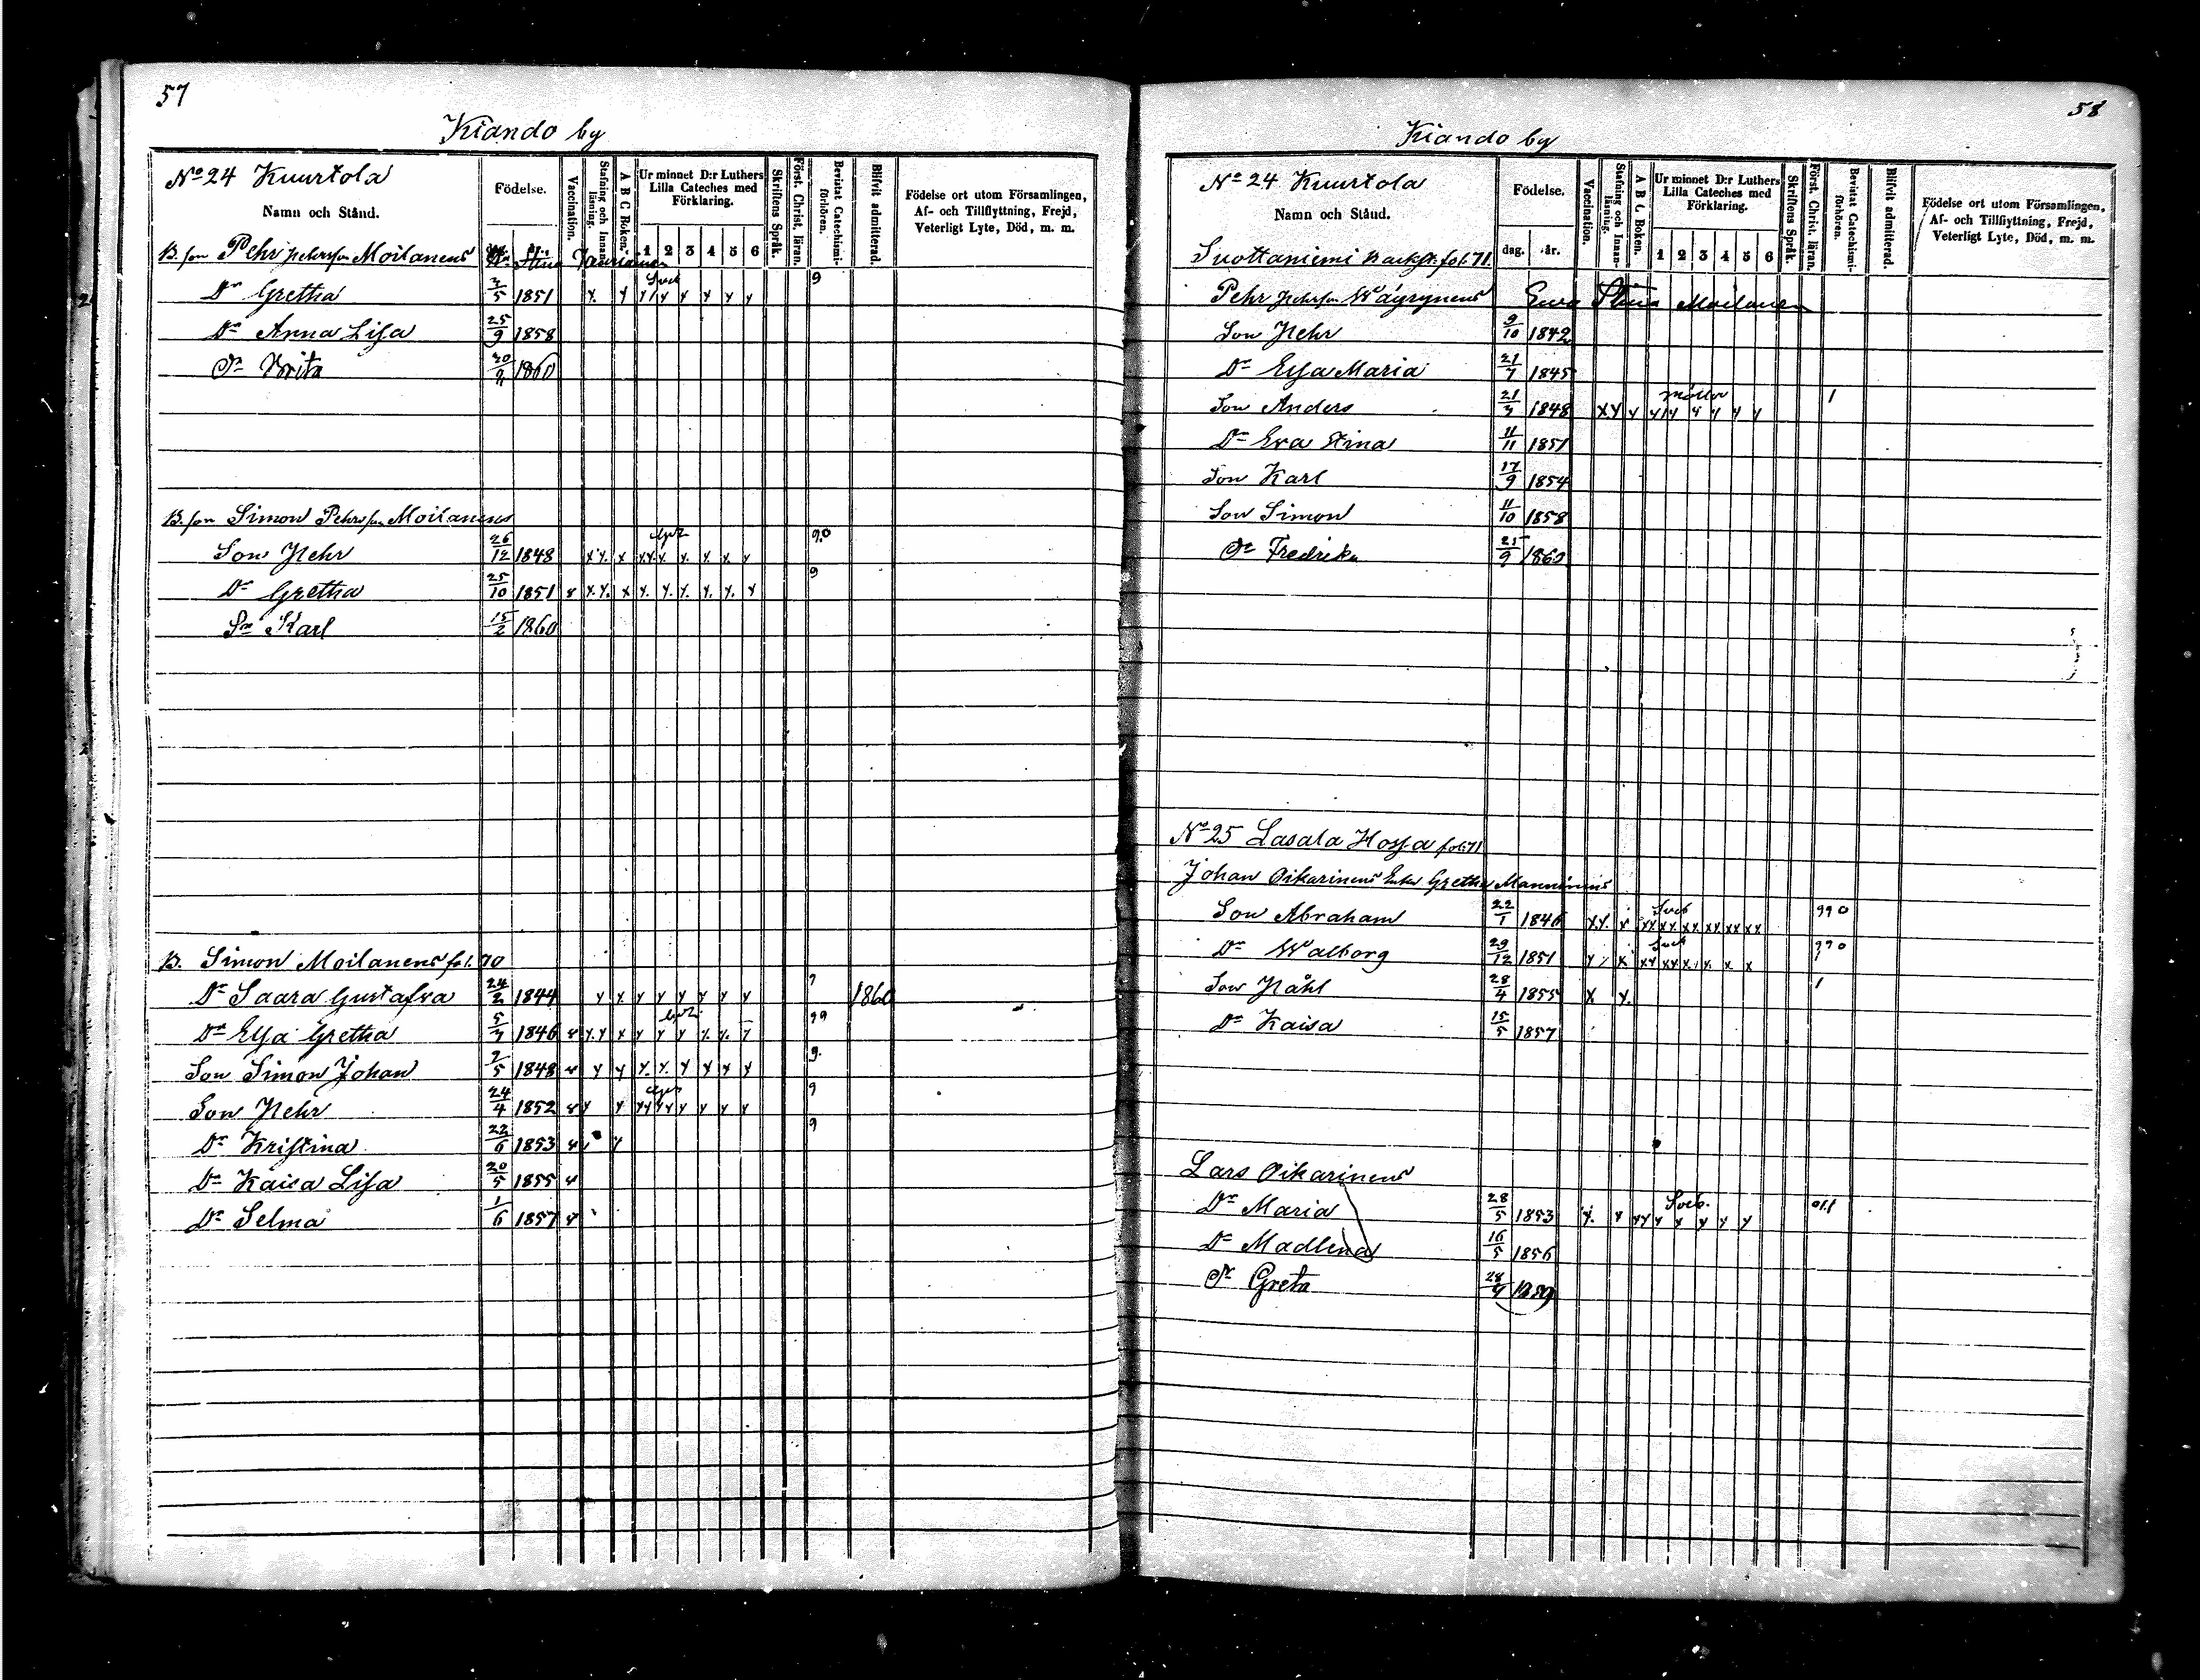 57
Kiando by
No 24 Kuurtola
Namn och Stånd.
Födelse.
Vaccination.
Stafning och Innanläsning.
A B C Boken.
Ur minnet D:r Luthers Lilla Cateches med Förklaring.
1 2 3 4 5 6
Skriftens Språk.
Först. Christ. läran.
Bevistat Catechismiförhören.
Blifvit admitterad.
Födelse ort utom Församlingen, Af- och Tillflyttning, Frejd, Veterligt Lyte, Död, m. m.
B. son Pehr Pehrsson Moilanens Stina
Dr Gretha 3/5 1851 9
Dr Anna Lisa 25/9 1858
Dr Brita 1860
B. son Simon Pehrsson Moilanens
Son Pehr 26/12 1848 x x. x x x x. x. x. x. x 9.0
Dr Gretha 25/10 1851 x. x. x x. x. x. x. x. x 9
Sn Karl 15/2 1860
B. Simon Moilanens fol. 70
Dr Saara Gustafva 24/2 1844 x x x x x x x x 1860
Dr Elsa Gretha 5/7 1846 99
Son Simon Johan 7/5 1848 9.
Son Pehr 24/4 1852 9
Dr Kristina 22/6 1853 9
Dr Kaisa Lisa 20/5 1855
Dr Selma 1/6 1857
58
Kiando by
No 24 Kuurtola
Namn och Stånd.
Födelse.
dag. år.
Vaccination.
Stafning och Innanläsning.
A B C Boken.
Ur minnet D:r Luthers Lilla Cateches med Förklaring.
1 2 3 4 5 6
Skriftens Språk.
Först. Christ. läran.
Bevistat Catechismiförhören.
Blifvit admitterad.
Födelse ort utom Församlingen, Af- och Tillflyttning, Frejd, Veterligt Lyte, Död, m. m.
Suottaniemi backst. fol. 71.
Pehr Pehrsson Wäyrynens Eva Stina Moilanen
Son Pehr 9/10 1842
Dr Elsa Maria 21/7 1845
Son Anders 1848 1
Dr Eva Stina 11/11 1851
Son Karl 17/9 1854
Son Simon 11/10 1858
Dr Fredrika 1860
No 25 Lasala Hossa fol. 71
Johan Oikarinens Enka Gretha Manninens
Son Abraham 22/1 1846 x x. x x x x x x x x x x x x x 990
Dr Walborg 29/12 1851 990
Son Påhl 28/4 1855 x x. 1
Dr Kaisa 15/5 1857
Lars Oikarinens
Dr Maria 28/5 1853
Dr Madlena 16/5 1856
Dr Greta 1859